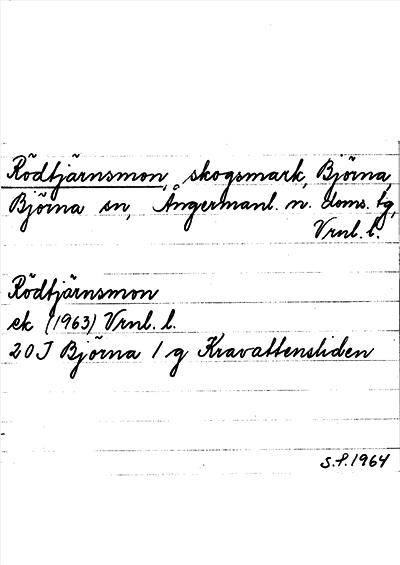 Rödtjärnsmon, skogsmark, Björna,
Björna sn, Ångermanl. n. doms. tg,
Vrnl. l.
Rödtjärnsmon
ek (1963) Vrnl. l.
20J Björna 1 g Kravattensliden
S.f. 1964